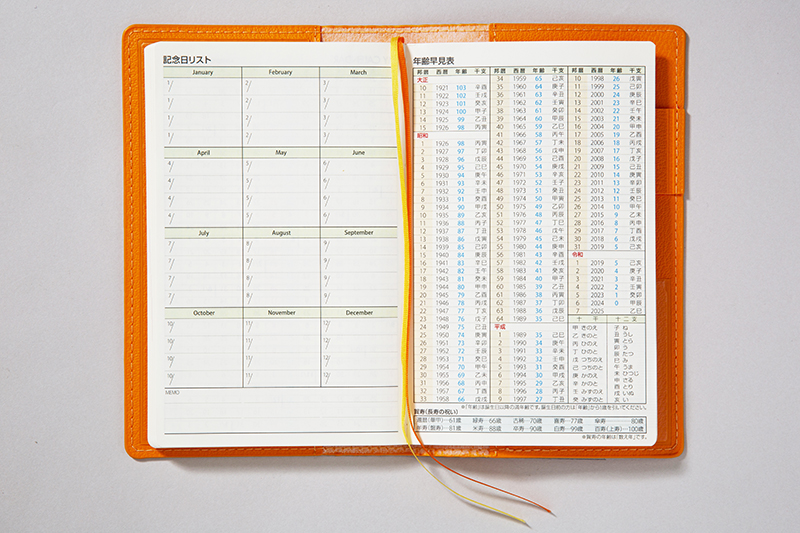 記念日リスト
January February March
1/ 2/ 3/
1/ 2/ 3/
1/ 2/ 3/
1/ 2/ 3/
April May June
4/ 5/ 6/
4/ 5/ 6/
4/ 5/ 6/
4/ 5/ 6/
July August September
7/ 8/ 9/
7/ 8/ 9/
7/ 8/ 9/
7/ 8/ 9/
October November December
10/ 11/ 12/
10/ 11/ 12/
10/ 11/ 12/
10/ 11/ 12/
MEMO
年齢早見表
邦暦 西暦 年齢 干支
大正
10 1921 103 辛酉
11 1922 102 壬戌
12 1923 101 癸亥
13 1924 100 甲子
14 1925 99 乙丑
15 1926 98 丙寅
昭和
1 1926 98 丙寅
2 1927 97 丁卯
3 1928 96 戊辰
4 1929 95 己巳
5 1930 94 庚午
6 1931 93 辛未
7 1932 92 壬申
8 1933 91 癸酉
9 1934 90 甲戌
10 1935 89 乙亥
11 1936 88 丙子
12 1937 87 丁丑
13 1938 86 戊寅
14 1939 85 己卯
15 1940 84 庚辰
16 1941 83 辛巳
17 1942 82 壬午
18 1943 81 癸未
19 1944 80 甲申
20 1945 79 乙酉
21 1946 78 丙戌
22 1947 77 丁亥
23 1948 76 戊子
24 1949 75 己丑
25 1950 74 庚寅
26 1951 73 辛卯
27 1952 72 壬辰
28 1953 71 癸巳
29 1954 70 甲午
30 1955 69 乙未
31 1956 68 丙申
32 1957 67 丁酉
33 1958 66 戊戌
邦暦 西暦 年齢 干支
34 1959 65 己亥
35 1960 64 庚子
36 1961 63 辛丑
37 1962 62 壬寅
38 1963 61 癸卯
39 1964 60 甲辰
40 1965 59 乙巳
41 1966 58 丙午
42 1967 57 丁未
43 1968 56 戊申
44 1969 55 己酉
45 1970 54 庚戌
46 1971 53 辛亥
47 1972 52 壬子
48 1973 51 癸丑
49 1974 50 甲寅
50 1975 49 乙卯
51 1976 48 丙辰
52 1977 47 丁巳
53 1978 46 戊午
54 1979 45 己未
55 1980 44 庚申
56 1981 43 辛酉
57 1982 42 壬戌
58 1983 41 癸亥
59 1984 40 甲子
60 1985 39 乙丑
61 1986 38 丙寅
62 1987 37 丁卯
63 1988 36 戊辰
64 1989 35 己巳
平成
1 1989 35 己巳
2 1990 34 庚午
3 1991 33 辛未
4 1992 32 壬申
5 1993 31 癸酉
6 1994 30 甲戌
7 1995 29 乙亥
8 1996 28 丙子
9 1997 27 丁丑
邦暦 西暦 年齢 干支
10 1998 26 戊寅
11 1999 25 己卯
12 2000 24 庚辰
13 2001 23 辛巳
14 2002 22 壬午
15 2003 21 癸未
16 2004 20 甲申
17 2005 19 乙酉
18 2006 18 丙戌
19 2007 17 丁亥
20 2008 16 戊子
21 2009 15 己丑
22 2010 14 庚寅
23 2011 13 辛卯
24 2012 12 壬辰
25 2013 11 癸巳
26 2014 10 甲午
27 2015 9 乙未
28 2016 8 丙申
29 2017 7 丁酉
30 2018 6 戊戌
31 2019 5 己亥
令和
1 2019 5 己亥
2 2020 4 庚子
3 2021 3 辛丑
4 2022 2 壬寅
5 2023 1 癸卯
6 2024 0 甲辰
7 2025 乙巳
十干 十二支
甲 きのえ
乙 きのと
丙 ひのえ
丁 ひのと
戊 つちのえ
己 つちのと
庚 かのえ
辛 かのと
壬 みずのえ
癸 みずのと
子 ね
丑 うし
寅 とら
卯 う
辰 たつ
巳 み
午 うま
未 ひつじ
申 さる
酉 とり
戌 いぬ
亥 い
※「年齢」は誕生日以降の満年齢です。誕生日前の方は「年齢」から1歳を引いてください。
賀寿(長寿の祝い)
還暦(華甲)—61歳 緑寿—66歳 古稀—70歳 喜寿—77歳 傘寿—80歳
半寿(盤寿)—81歳 米寿—88歳 卒寿—90歳 白寿—99歳 百寿(上寿)—100歳
※賀寿の年齢は「数え年」です。